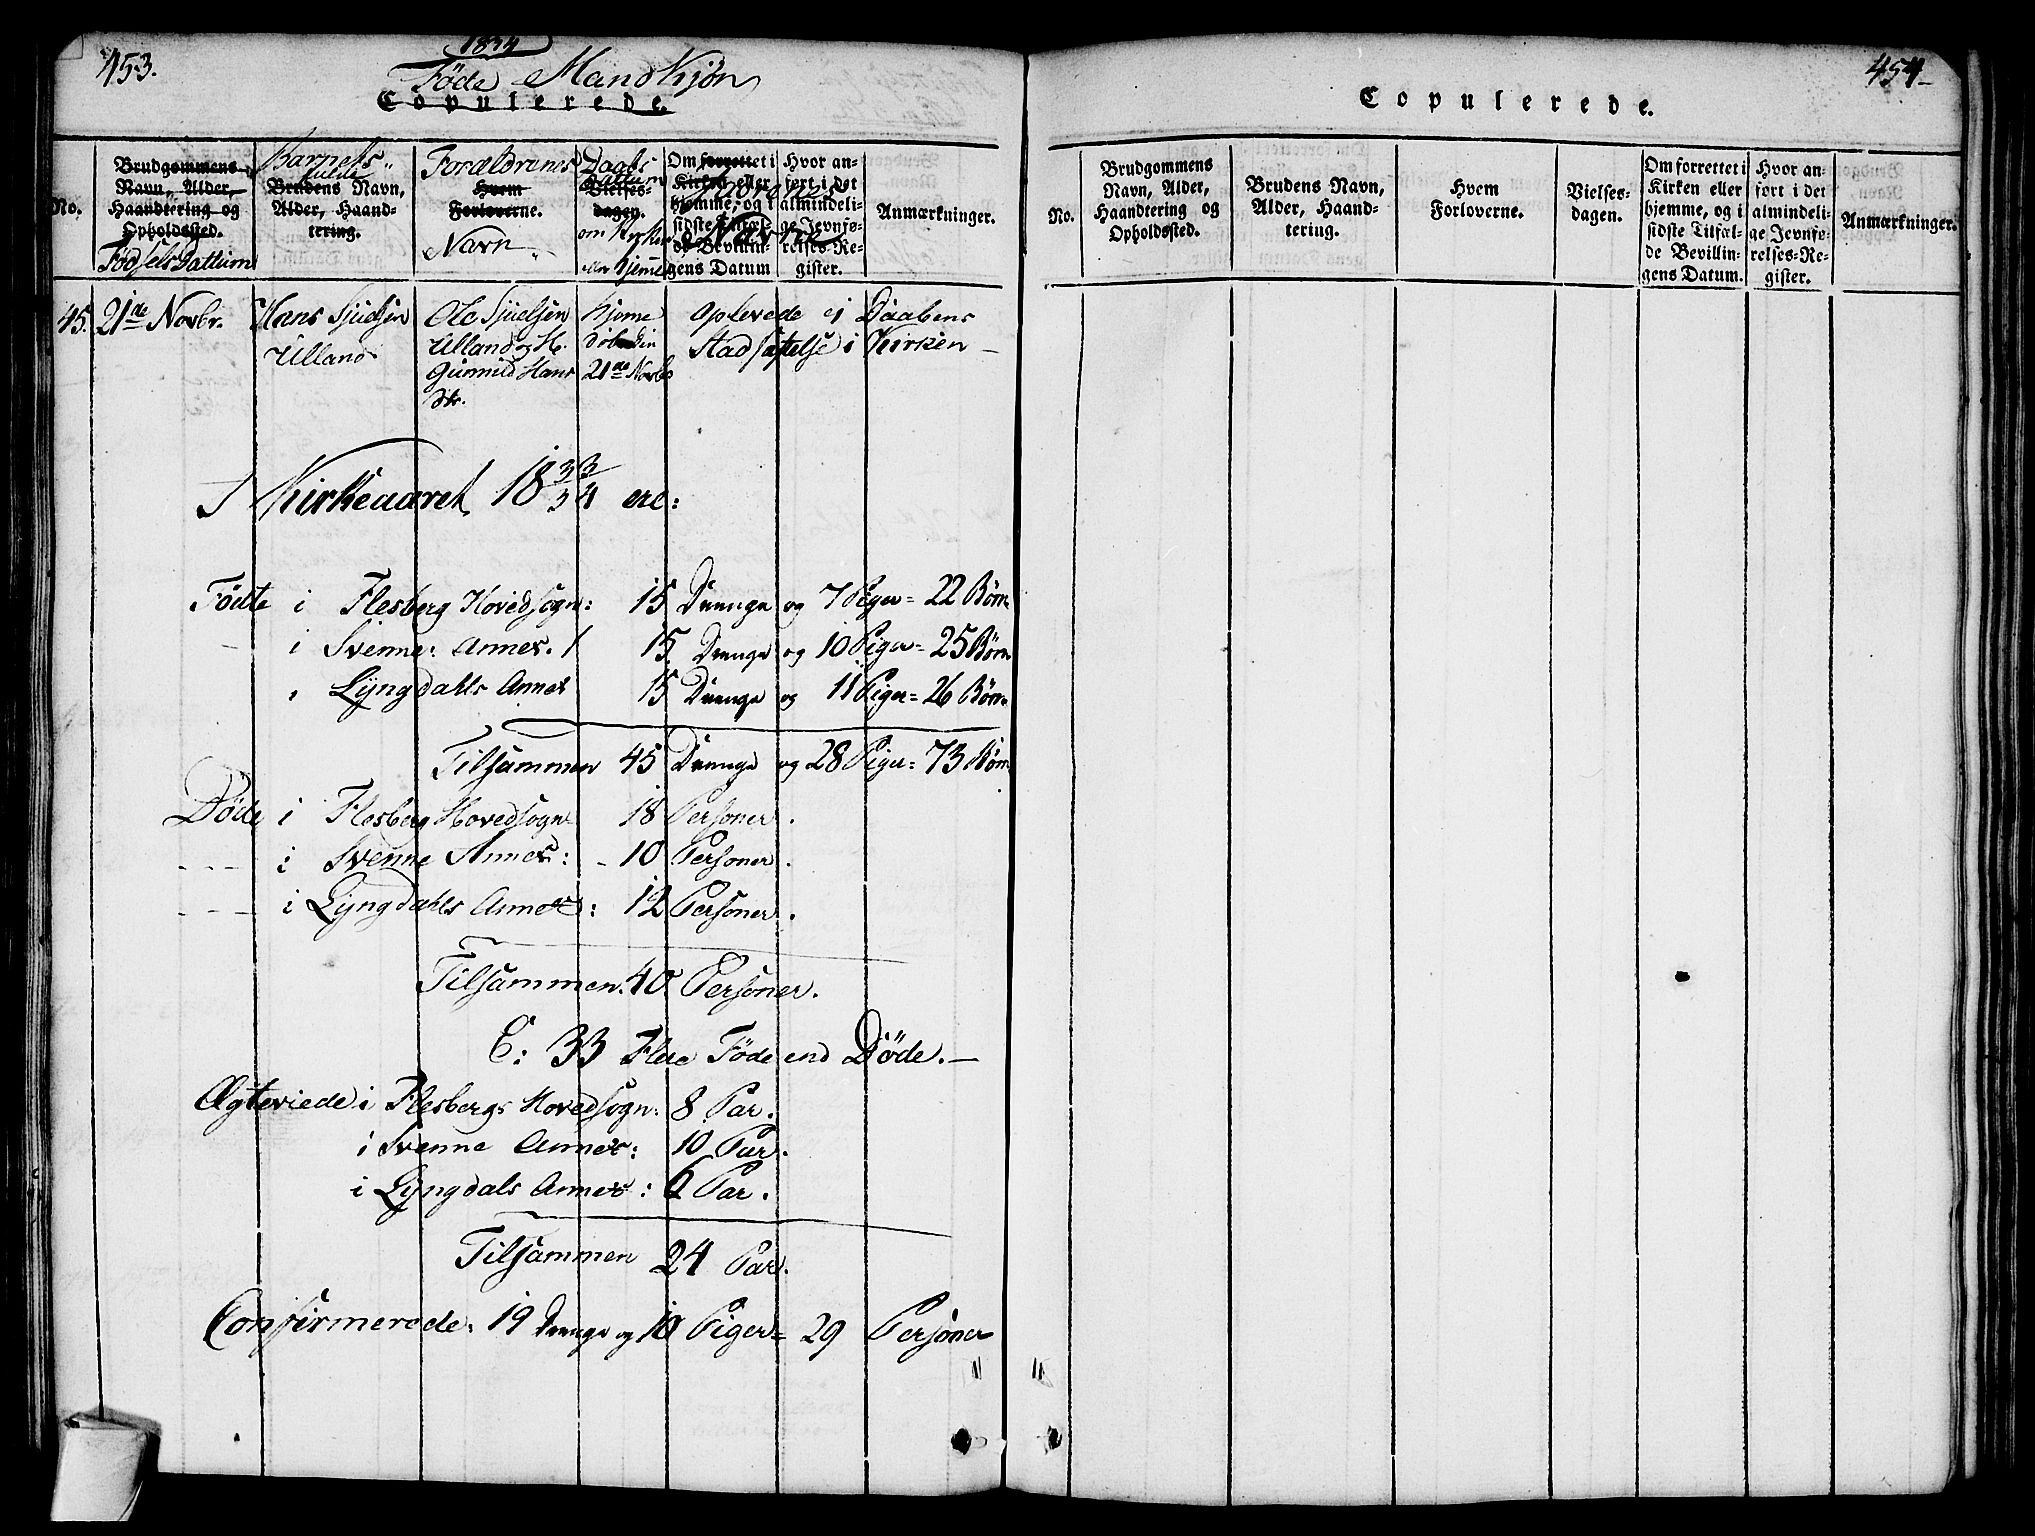 453.
1834
Føde Mandkjøn
Copulerede.
No.
Brudgommens
Navn, Alder,
Haandtering og
Opholdssted.
Fødsels Dattum
Barnets
fulde
Brudens Navn,
Alder, Haand-
tering.
Forældrenes
Hvem
Forloverne.
Navn
Daabs
Dattum
Vielses-
dagen.
om Kirken
eller Hjeme
Om forrettet i
Kirken eller
hjemme, og i
sidste Tilfæl-
de Bevillin-
gens Datum
Hvor an-
ført i det
almindeli-
ge Jevnfø-
relses-Re-
gister.
Navne
Anmærkninger.
45. 21de Novbr.
Hans Sjulsen
Ulland
Ole Sjulsen
Ulland og H.
Gunnild Hans
Dtr.
hjeme
døbt den
21de Novbr
oplevede ej Daabens
Stadfæstelse i Kirken
I Kirkeaaret 18 33/34 ere:
Fødte i Flesberg Hovedsogn: 15 Drenge og 7 Piger = 22 Børn
i Svenne Annex. 15 Drenge og 10 Piger = 25 Børn
i Lyngdahls Annex 15 Drenge og 11 Piger = 26 Børn
Tilsammen 45 Drenge og 28 Piger = 73 Børn
Døde i Flesberg Hovedsogn 18 Personer.
--- i Svenne Annex: - 10 Personer.
--- i Lyngdahls Annex: 12 Personer.
Tilsammen 40 Personer.
C: 33 Flere Føde end Døde.—
Ægteviede i Flesbergs Hovedsogn: 8 Par.
i Svenne Annex: 10 Par.
i Lyngdals Annex: 6 Par.
Tilsammen 24 Par.
Confirmerede: 19 Drenge og 10 Piger = 29 Personer
454
Copulerede.
No.
Brudgommens
Navn, Alder,
Haandtering og
Opholdssted.
Brudens Navn,
Alder, Haand-
tering.
Hvem
Forloverne.
Vielses-
dagen.
Om forrettet i
Kirken eller
hjemme, og i
sidste Tilfæl-
de Bevillin-
gens Datum.
Hvor an-
ført i det
almindeli-
ge Jevnfø-
relses-Re-
gister.
Anmærkninger.